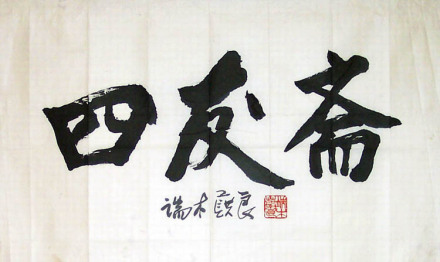 四友斋
端木蕻良